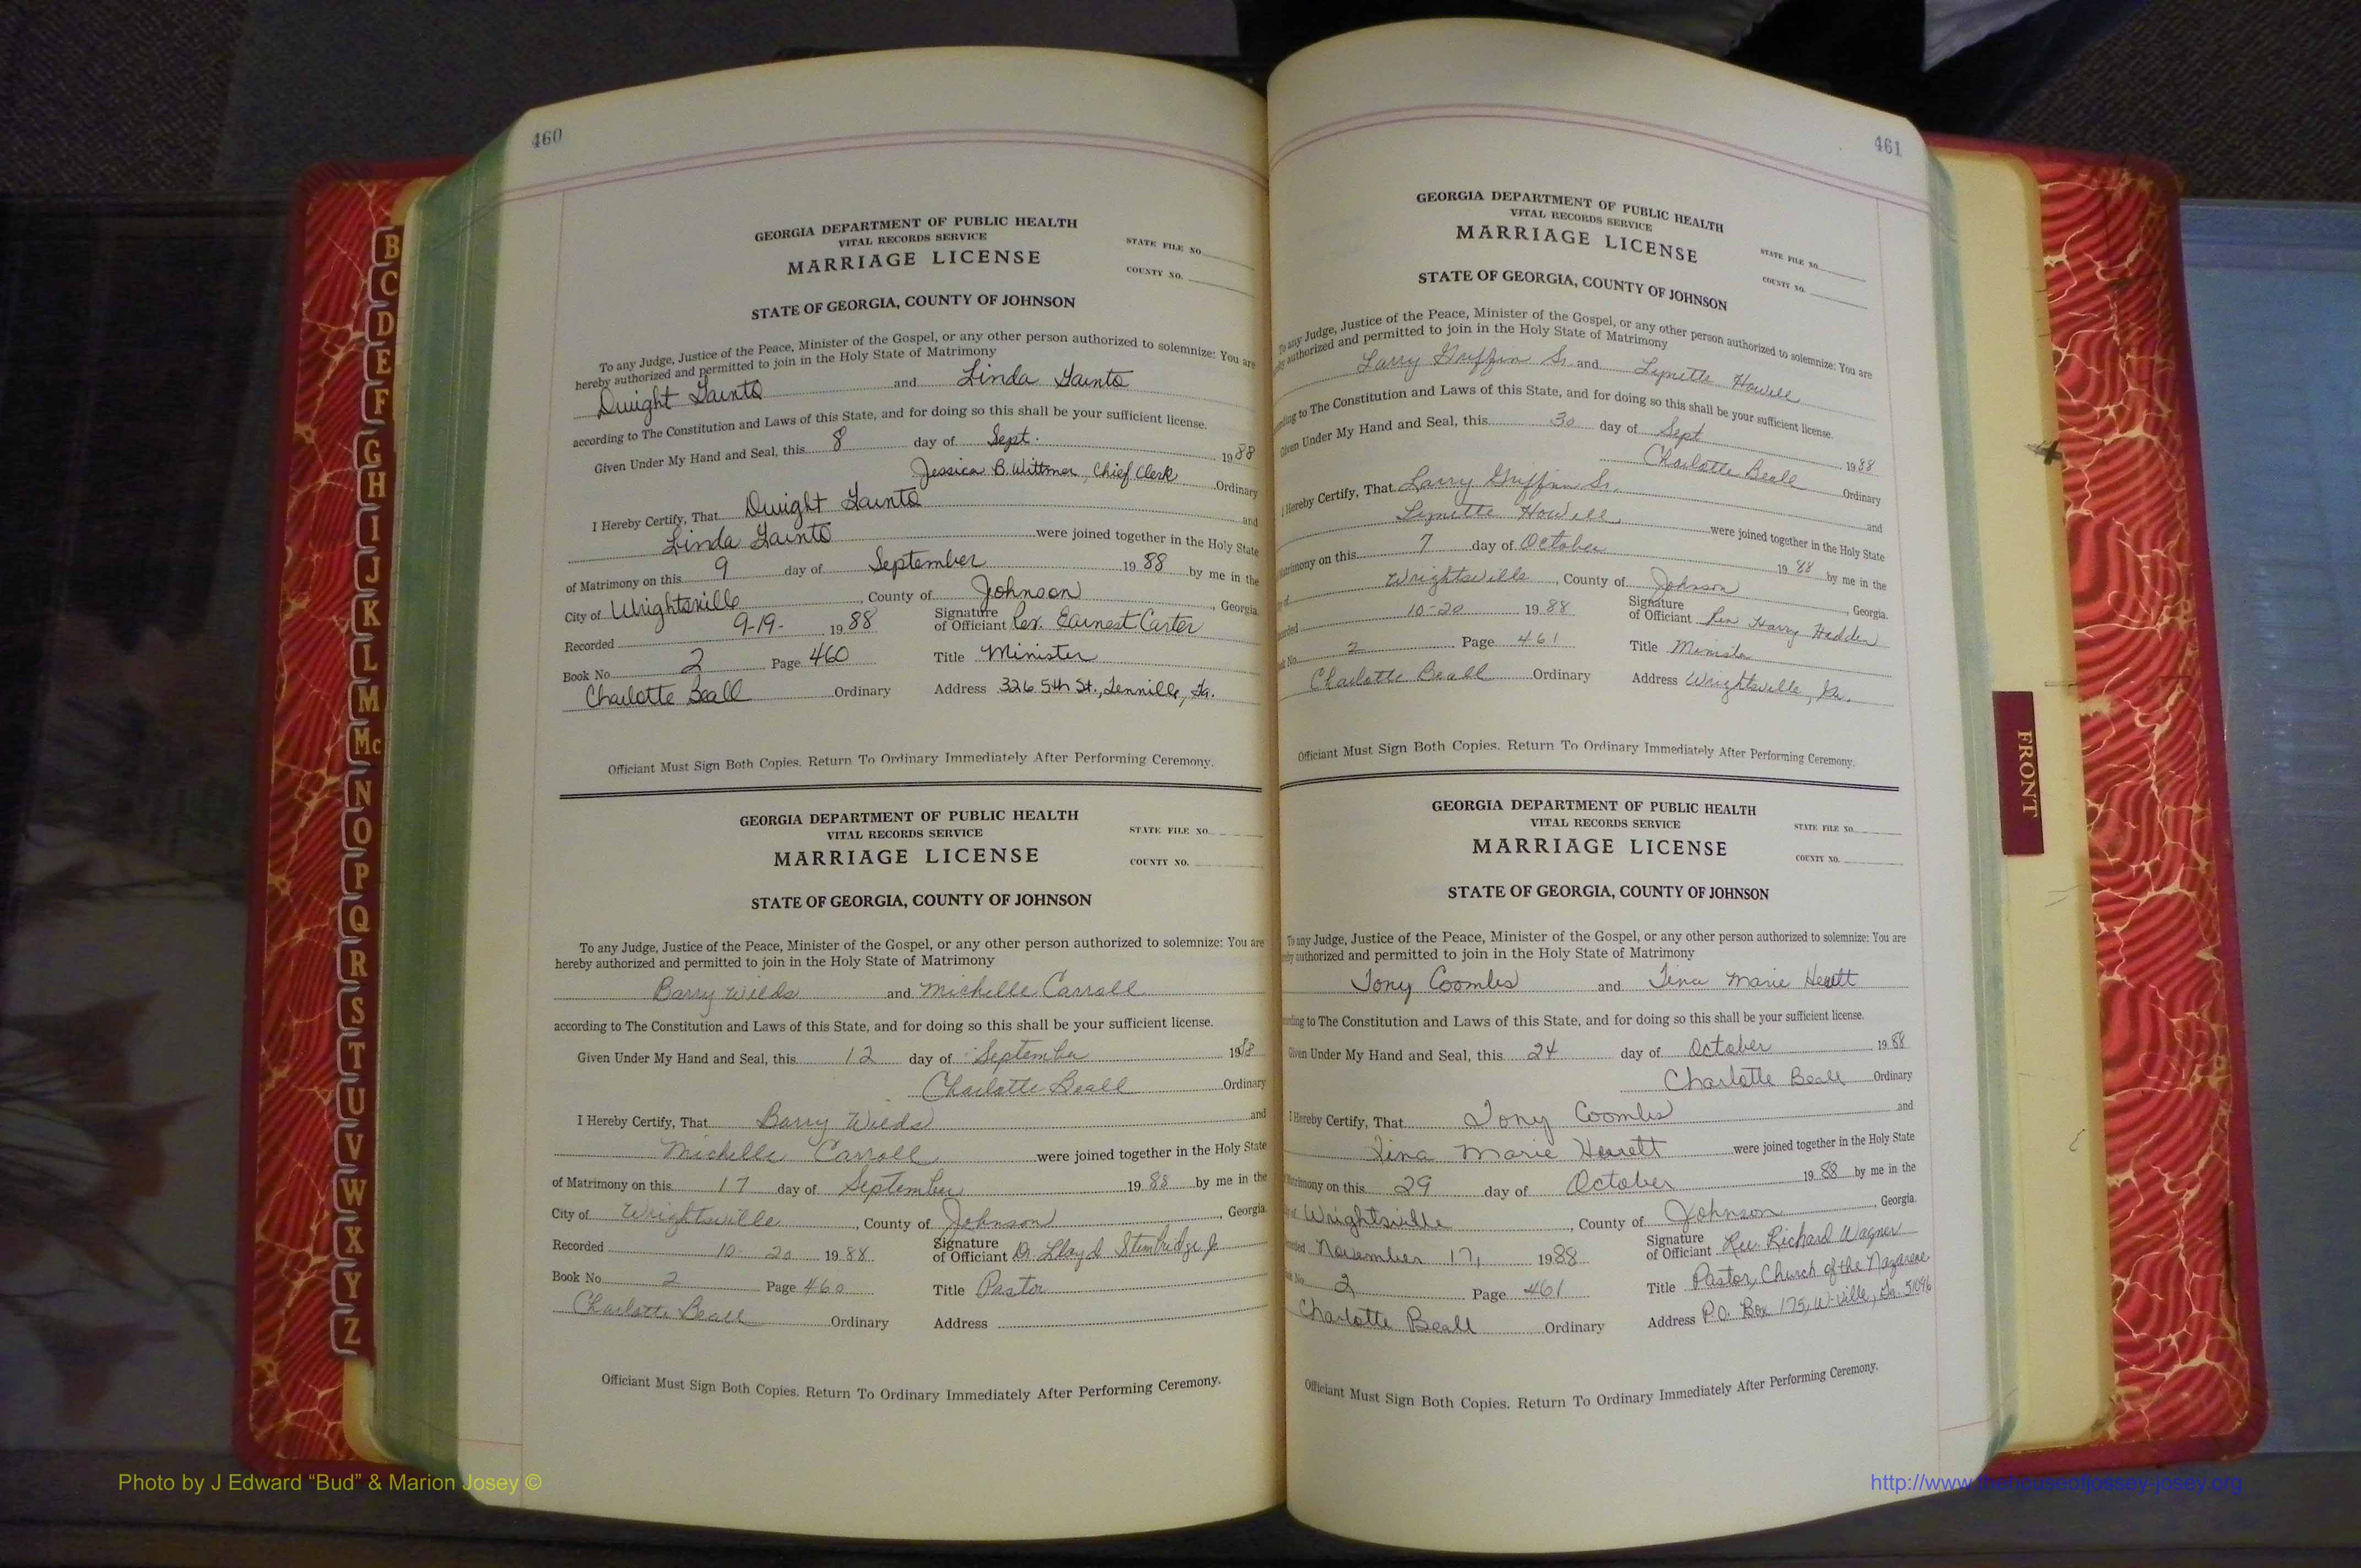 460
GEORGIA DEPARTMENT OF PUBLIC HEALTH
VITAL RECORDS SERVICE
MARRIAGE LICENSE
STATE FILE NO.
COUNTY NO.
STATE OF GEORGIA, COUNTY OF JOHNSON
To any Judge, Justice of the Peace, Minister of the Gospel, or any other person authorized to solemnize: You are
hereby authorized and permitted to join in the Holy State of Matrimony
Dwight and Linda
according to The Constitution and Laws of this State, and for doing so this shall be your sufficient license.
Given Under My Hand and Seal, this 8 day of Sept. 1988
Jessica B. Wittmer, Chief Clerk Ordinary
I Hereby Certify, That Dwight and
Linda were joined together in the Holy State
of Matrimony on this 9 day of September 1988 by me in the
City of Wrightsville, County of Johnson, Georgia
Recorded 9-19- 1988 Signature of Officiant Rev. Earnest Carter
Book No. 2 Page 460 Title Minister
Charlotte Beall Ordinary Address 326 5th St., Tennille, Ga.
Officiant Must Sign Both Copies. Return To Ordinary Immediately After Performing Ceremony.
GEORGIA DEPARTMENT OF PUBLIC HEALTH
VITAL RECORDS SERVICE
MARRIAGE LICENSE
STATE FILE NO.
COUNTY NO.
STATE OF GEORGIA, COUNTY OF JOHNSON
To any Judge, Justice of the Peace, Minister of the Gospel, or any other person authorized to solemnize: You are
hereby authorized and permitted to join in the Holy State of Matrimony
Barry Wilds and Michelle Carroll
according to The Constitution and Laws of this State, and for doing so this shall be your sufficient license.
Given Under My Hand and Seal, this 12 day of September 1988
Charlotte Beall Ordinary
I Hereby Certify, That Barry Wilds and
Michelle Carroll were joined together in the Holy State
of Matrimony on this 17 day of September 1988 by me in the
City of Wrightsville, County of Johnson, Georgia
Recorded 10-20 1988 Signature of Officiant Dr. Lloyd Stembridge Jr
Book No. 2 Page 460 Title Pastor
Charlotte Beall Ordinary Address
Officiant Must Sign Both Copies. Return To Ordinary Immediately After Performing Ceremony.
461
GEORGIA DEPARTMENT OF PUBLIC HEALTH
VITAL RECORDS SERVICE
MARRIAGE LICENSE
STATE FILE NO.
COUNTY NO.
STATE OF GEORGIA, COUNTY OF JOHNSON
To any Judge, Justice of the Peace, Minister of the Gospel, or any other person authorized to solemnize: You are
authorized and permitted to join in the Holy State of Matrimony
Larry Griffin Sr. and Lynette Howell
to The Constitution and Laws of this State, and for doing so this shall be your sufficient license.
Given Under My Hand and Seal, this 30 day of Sept 1988
Charlotte Beall Ordinary
I Hereby Certify, That Larry Griffin Sr. and
Lynette Howell were joined together in the Holy State
Matrimony on this 7 day of October 1988 by me in the
Wrightsville, County of Johnson, Georgia.
10-20 1988 Signature of Officiant Rev Harry Hadden
2 Page 461 Title Minister
Charlotte Beall Ordinary Address Wrightsville, Ga.
Officiant Must Sign Both Copies. Return To Ordinary Immediately After Performing Ceremony.
GEORGIA DEPARTMENT OF PUBLIC HEALTH
VITAL RECORDS SERVICE
MARRIAGE LICENSE
STATE FILE NO.
COUNTY NO.
STATE OF GEORGIA, COUNTY OF JOHNSON
To any Judge, Justice of the Peace, Minister of the Gospel, or any other person authorized to solemnize: You are
authorized and permitted to join in the Holy State of Matrimony
Tony Coombs and Tina Marie
to The Constitution and Laws of this State, and for doing so this shall be your sufficient license.
Given Under My Hand and Seal, this 24 day of October 1988
Charlotte Beall Ordinary
I Hereby Certify, That Tony Coombs and
Tina Marie were joined together in the Holy State
Matrimony on this 29 day of October 1988 by me in the
Wrightsville, County of Johnson, Georgia
November 17, 1988 Signature of Officiant Rev. Richard Wagner
2 Page 461 Title Pastor, Church of the Nazarene
Charlotte Beall Ordinary Address P.O. Box 175, W-ville, Ga. 31096
Officiant Must Sign Both Copies. Return To Ordinary Immediately After Performing Ceremony.
B
C
D
E
F
G
H
I
J
K
L
M
Mc
N
O
P
Q
R
S
T
U
V
W
X
Y
Z
FRONT
Photo by J Edward “Bud” & Marion Josey ©
http://www.thehouseofjossey-josey.org